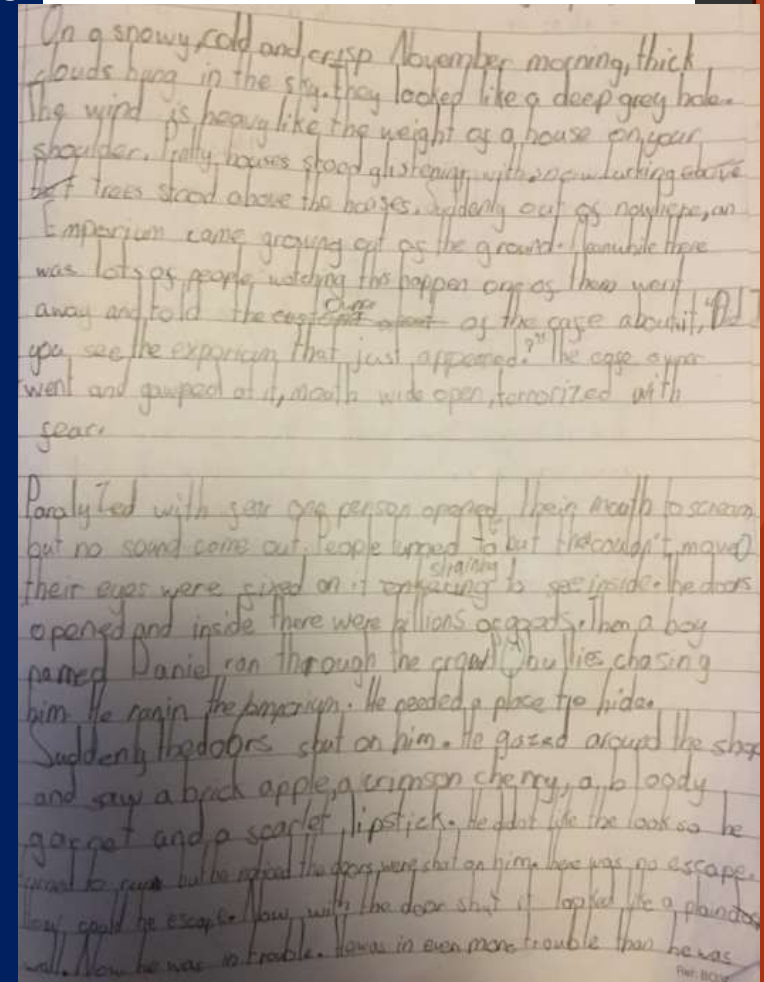 On a snowy, cold and, crisp November morning, thick
clouds hung in the sky. they looked like a deep grey hole.
The wind is heavy like the weight of a house on your
shoulder. Pretty houses stood glistening, with snow lurking above
trees stood above the houses. Suddenly out of nowhere, an
Emporium came growing out of the ground. Meanwhile there
was lots of people, watching this happen one of them went
away and told the owner of the cafe about it, "Did
you see the exporium that just appeared?" The cafe owner
went and gawped at it, mouth wide open, terrorized with
fear.
Paralyzed with fear one person opened their mouth to scream
but no sound come out. People to but the couldn't move
their eyes were fixed on it straining to see inside. The doors
opened and inside there were billions of goods. Then a boy
named Daniel ran through the crowd bullies chasing
him He ran in the emporium. He needed a place to hide.
Suddenly the doors shut on him. He gazed around the shop
and saw a brick apple, a crimson cherry, a bloody
garnet and a scarlet lipstick. He didnt like the look so he
to but he noticed the doors were shut on him. there was no escape.
How could he escape. Now with the door shut it looked like a plain
wall. Now he was in trouble. He was in even more trouble than he was